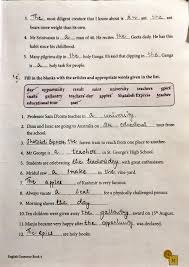 3. The most diligent creature that I know about is an ant. The ant
bears once weight than its own.
4. Mr Srinivasan is a man of all. He recites the Geeta daily. He has this
habit since his childhood.
5. Many pilgrims dip in the holy Ganga. It's said that dipping in the Ganga
is a holy task for people.
Fill in the blanks with the articles and appropriate words given in the list.
day opportunity result saint university teachers epics
snake gallantry teachers' day apples Shatabdi Express teacher
educational tour seat
1. Professor Sam D'costa teaches in a university.
2. Dian and Isaac are going to Australia on an educational tour from
the school.
3. Shatabdi Express the leaves train to reach from one place to another.
4. Mr George is a teacher in St. George's High School.
5. Students are celebrating the teachers day with great enthusiasm.
6. Mridul on Camatkar is the
7. The apples of Kashmir is very famous.
8. Always vacate a seat for a physically challenged person.
9. Morning shows the day.
10. Ten children were given away the gallantry award on 15th August.
11. Mania became very happy after the opportunity was declared.
12. The epics are holy books.
English Grammar Book 4